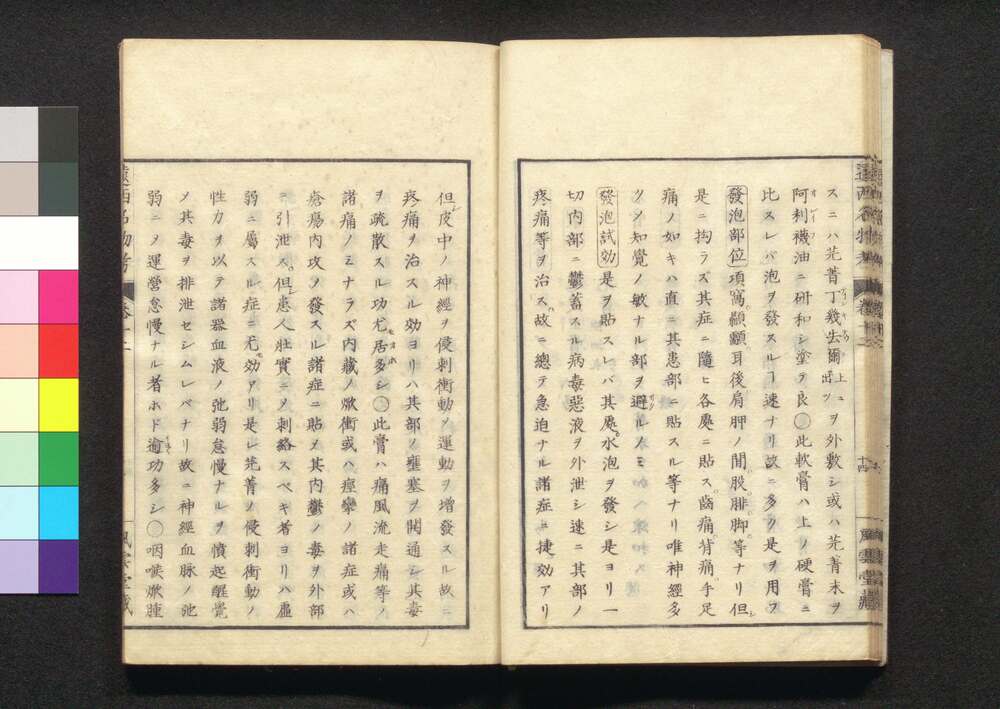 スニハ芫菁丁幾失爾上ニ出ツヲ外敷シ或ハ芫菁末ヲ
阿利襪油ニ研和シ塗テ良〇此軟膏ハ上ノ硬膏ニ
比スレバ泡ヲ發スルヿ速ナリ故ニ多ク是ヲ用フ
發泡部位 項窩顳顬耳後肩胛ノ間股腓脚等ナリ但シ
是ニ拘ラズ其症ニ隨ヒ各處ニ貼ス齒痛背痛手足
痛ノ如キハ直ニ其患部ニ貼スル等ナリ唯神經多
クメ知覺ノ敏ナル部ヲ避ルノミ
發泡試効 是ヲ貼スレバ其處水泡ヲ發シ是ヨリ一
切内部ニ鬱蓄スル病毒惡液ヲ外泄シ速ニ其部ノ
疼痛等ヲ治ス故ニ總テ急迫ナル諸症ニ捷効アリ
遠西名物考
十四
風雲堂藏
但皮中ノ神經ヲ侵刺衝動メ運動ヲ增發スル故ニ
疼痛ヲ治スル効ヨリハ其部ノ壅塞ヲ開通シ其毒
ヲ疏散スル功尤居多シ〇此膏ハ痛風流走痛等ノ
諸痛ノミナラズ内臓ノ焮衝或ハ痙攣ノ諸症或ハ
瘡瘍内攻メ發スル諸症ニ貼メ其内鬱ノ毒ヲ外部
ニ引泄ス但患人壯實ニメ刺絡スベキ者ヨリハ虛
弱ニ屬スル症ニ尤効アリ是レ芫菁ノ侵刺衝動ノ
性力ヲ以テ諸器血液ノ弛弱怠慢ナルヲ憤起醒覺
メ其毒ヲ排泄セシムレバナリ故ニ神經血脉ノ弛
弱ニメ運營怠慢ナル者ホド逾功多シ〇咽喉焮腫
遠西名物考
風雲堂藏